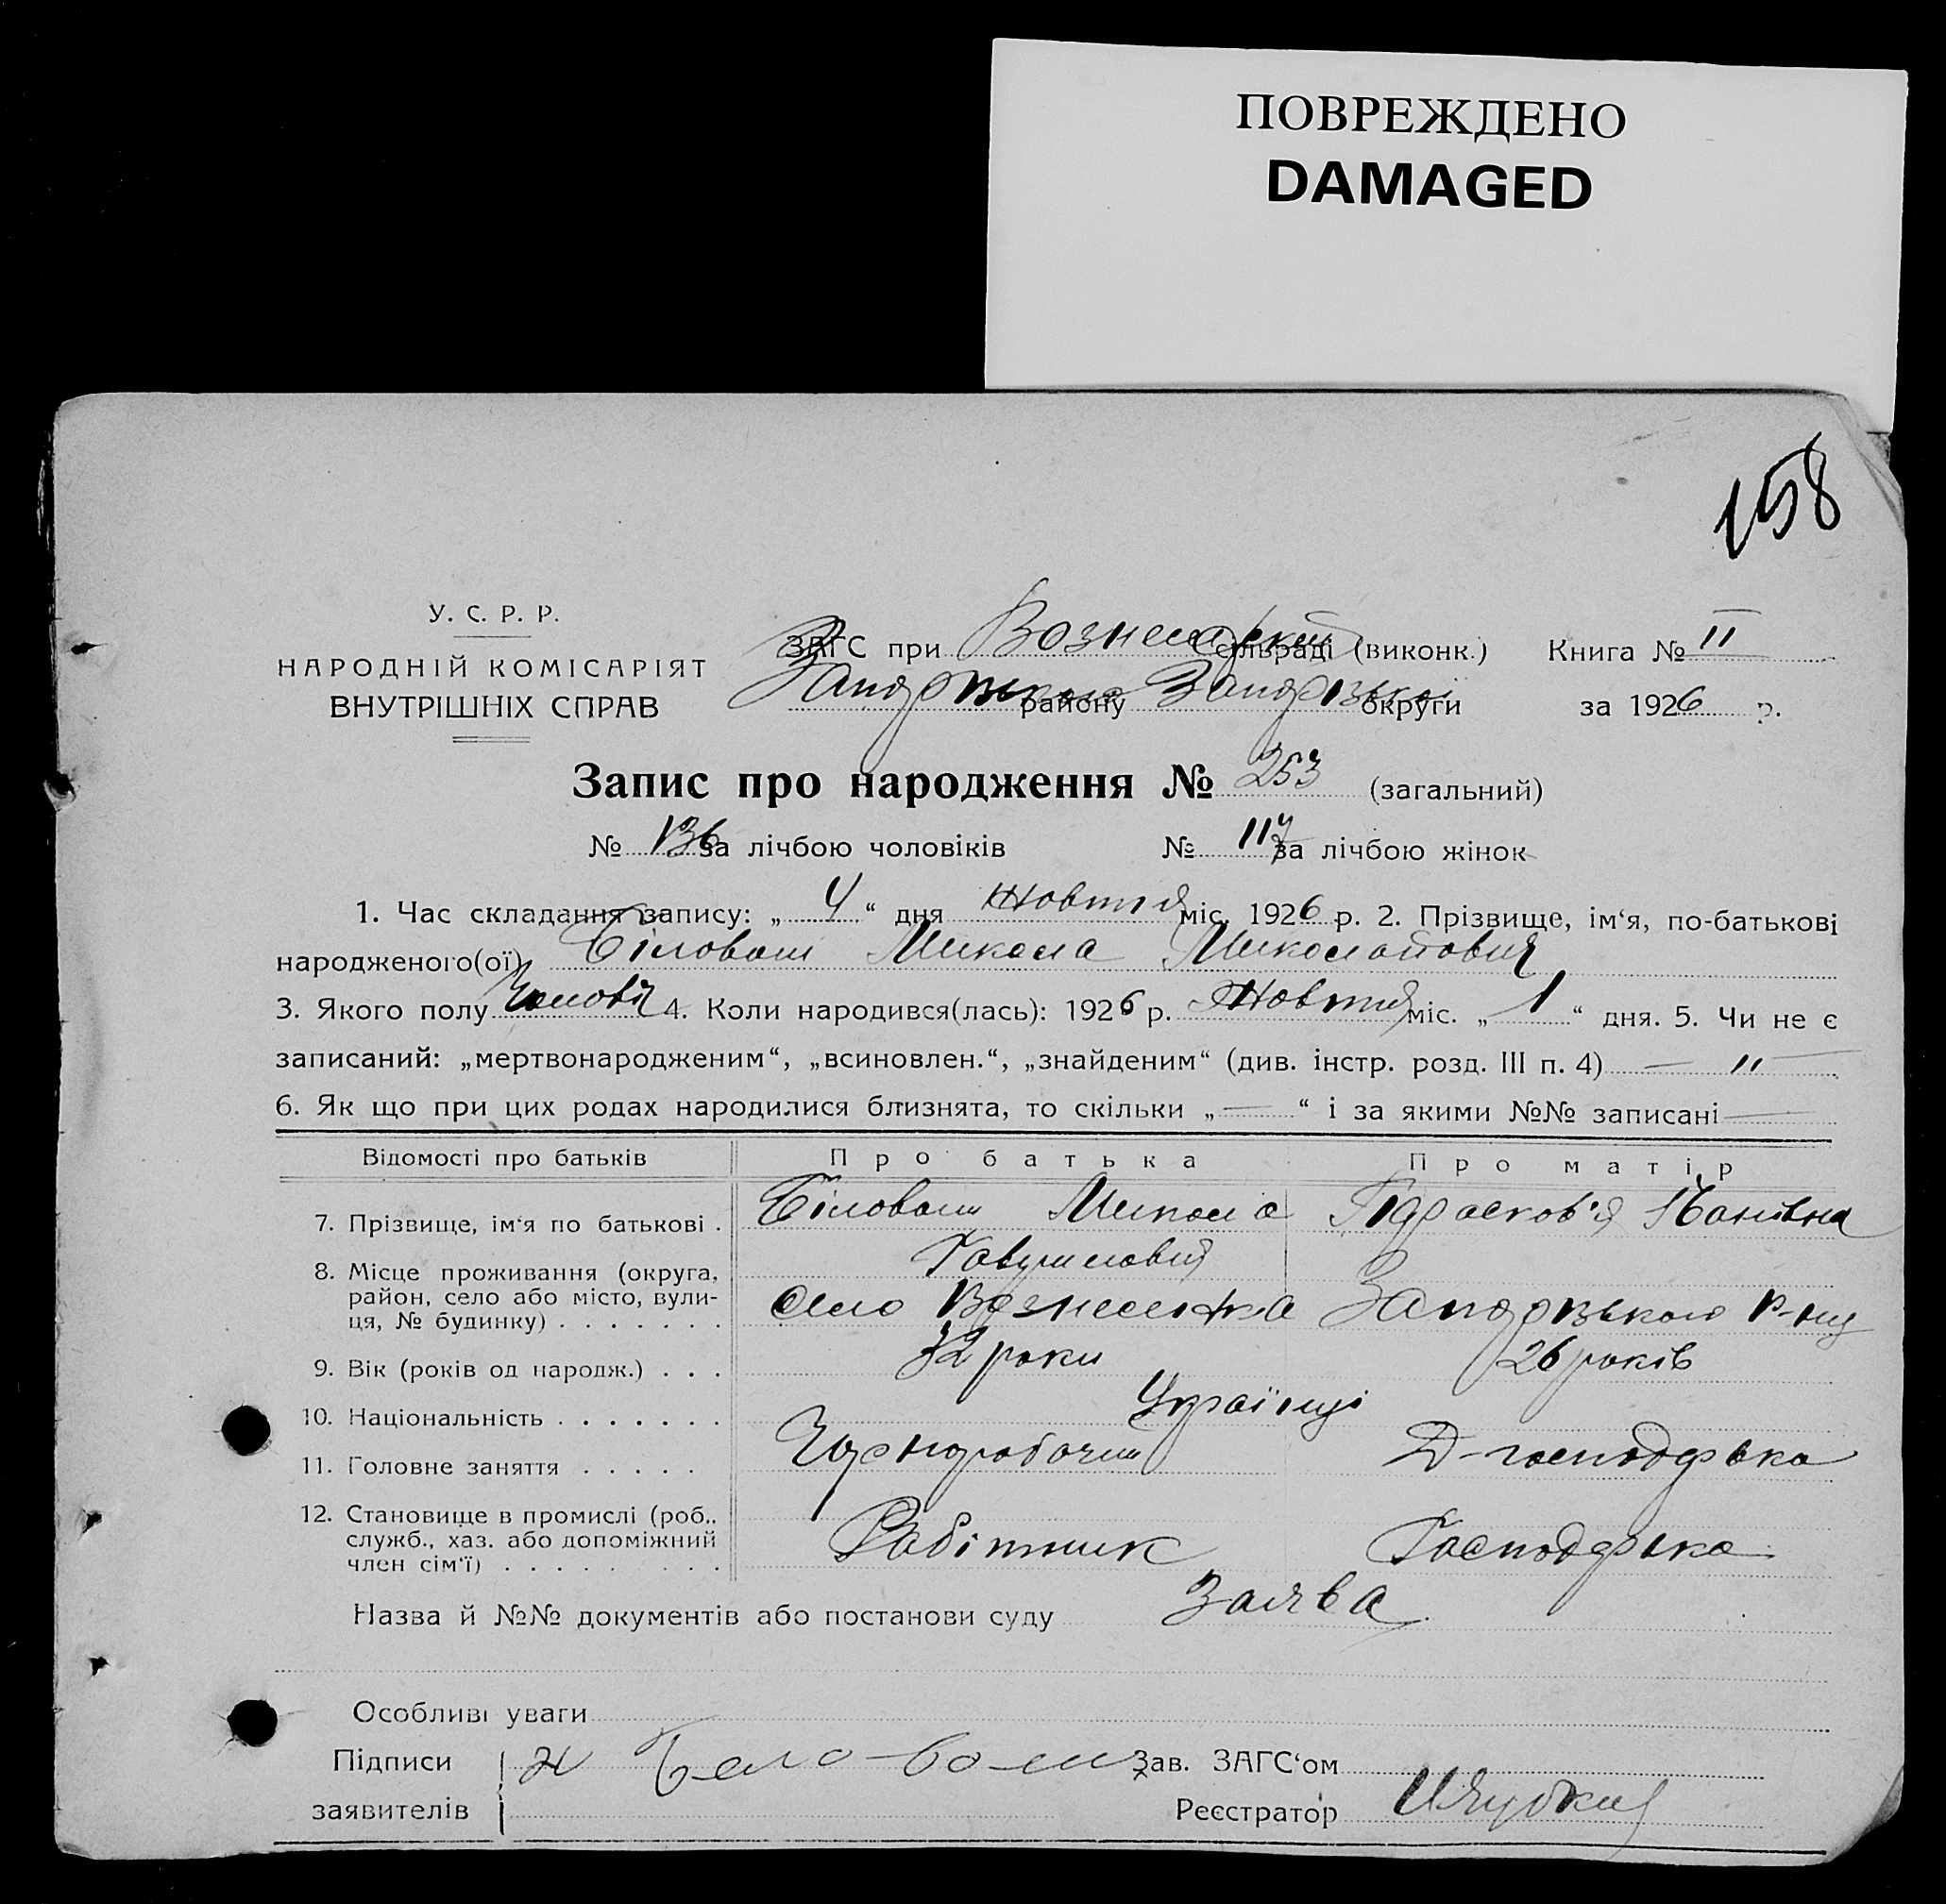 ПОВРЕЖДЕНО
DAMAGED
158
У. С. Р. Р.
НАРОДНІЙ КОМІСАРІЯТ
ВНУТРІШНІХ СПРАВ
ЗАГС при Вознесенській сельраді (виконк.) Книга № II
Запорізького району Запорізької округи за 1926 р.
Запис про народження № 253 (загальний)
№ 136 за лічбою чоловіків № 117 за лічбою жінок
1. Час складання запису: „ 4 “ дня Жовтня міс. 1926 р. 2. Прізвище, ім‘я, по-батькові
народженого(ої) Біловаш Микола Миколайович
3. Якого полу Чоловіч 4. Коли народився(лась): 1926 р. Жовтня міс. „ 1 “ дня. 5. Чи не є
записаний: „мертвонародженим“, „всиновлен.“, „знайденим“ (див. інстр. розд. III п. 4) — „ —
6. Як що при цих родах народилися близнята, то скільки „ — “ і за якими №№ записані —
Відомості про батьків Про батька Про матір
7. Прізвище, ім‘я по батькові . Біловаш Микола Іванівна
Гаврилович
8. Місце проживання (округа,
район, село або місто, вули-
ця, № будинку) . . . . . . . село Вознесенка Запорізького р-ну
9. Вік (років од народж.) . . . 32 роки 26 років
10. Національність . . . . . . . Українці
11. Головне заняття . . . . . Чорноробочий Д-господарка
12. Становище в промислі (роб.,
служб., хаз. або допоміжний
член сім‘ї) . . . . . . . . . Робітник Господарка
Назва й №№ документів або постанови суду Заява
Особливі уваги
Підписи заявителів Бело-ваш
Зав. ЗАГС‘ом
Реєстратор